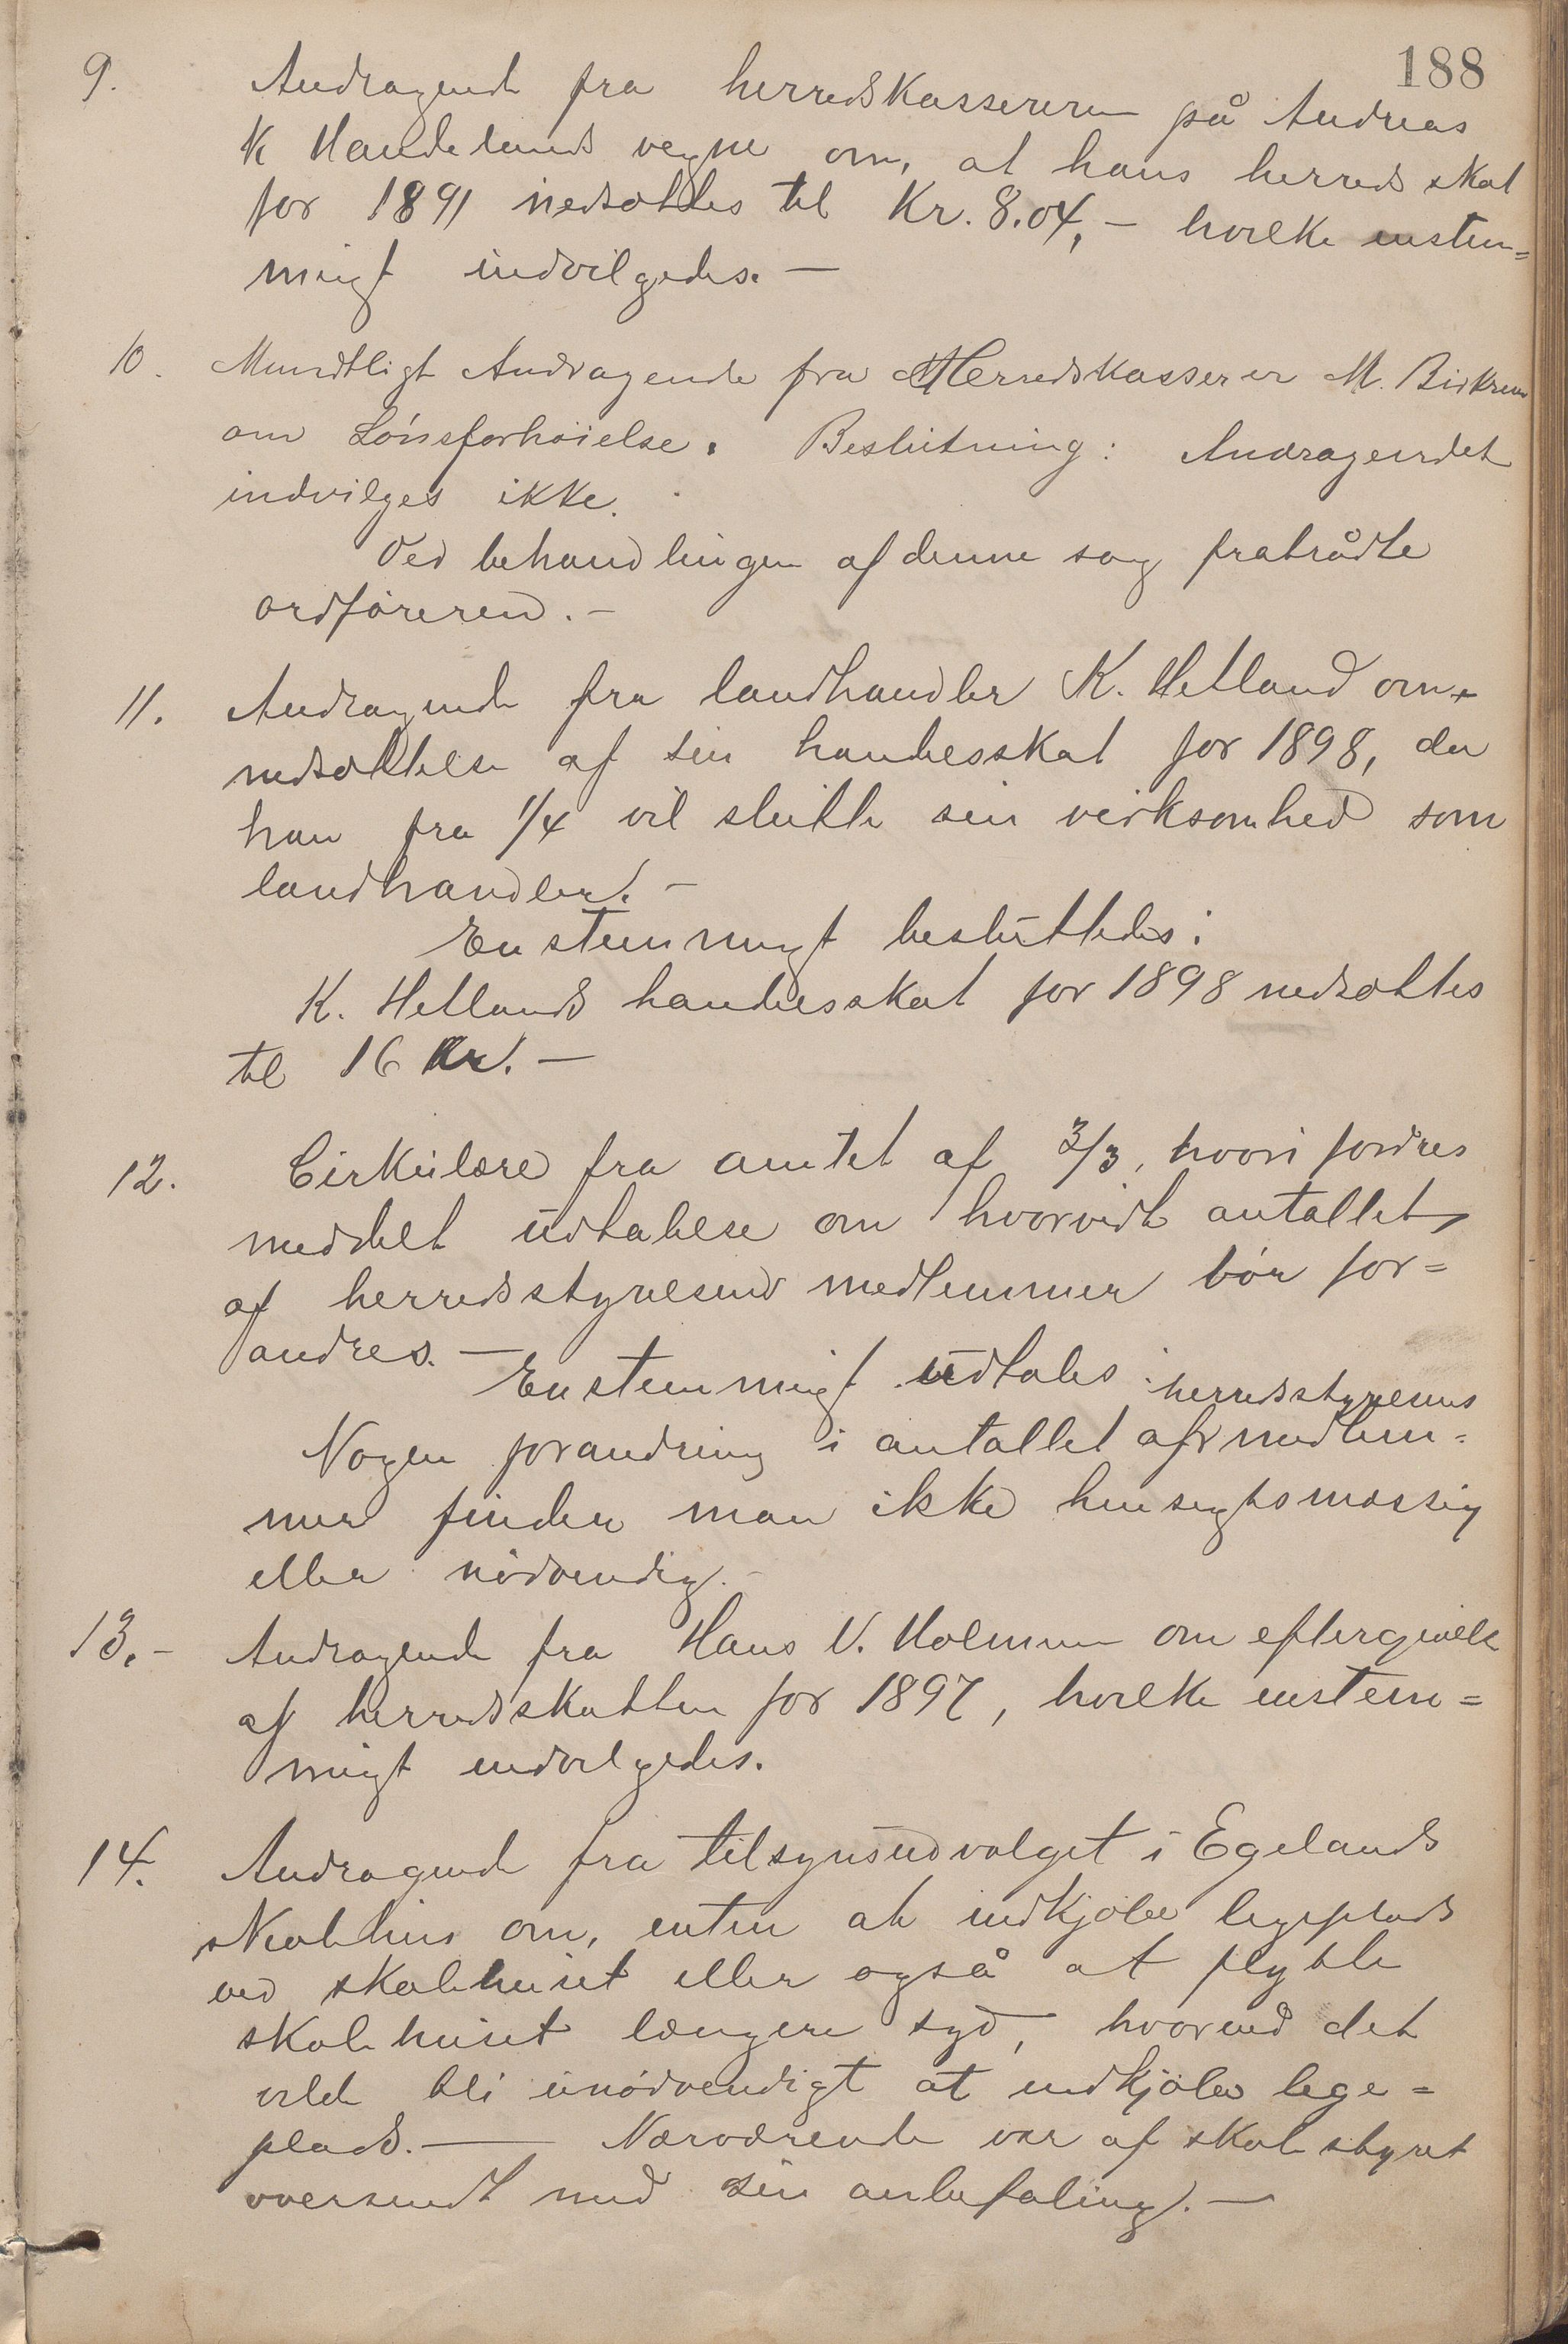 188
9. Andragende fra herredskassereren på Andreas
K Haudelands vegne om, at hans herredsskat
for 1891 nedsættes til Kr. 8.04, – hvilke enstem=
migt indvilgedes. –
10. Mundtligt Andragende fra Herredskasserer M. Birkrem
om Lønsforhøielse. Beslutning: Andragendet
indvilges ikke.
Ved behandlingen af denne sag fratrådte
ordføreren. –
11. Andragende fra landhandler K. Hetland om
nedsættelse af sin handelsskat for 1898, da
han fra 1/4 vil slutte sin virksomhed som
landhandler. –
Enstemmigt besluttedes:
K. Hetlands handelsskat for 1898 nedsættes
til 16 Kr. –
12. Cirkulære fra amtet af 3/3, hvori fordres
meddelt udtalelse om hvorvidt antallet
af herredsstyrelsens medlemmer bør for=
andres. –
Enstemmigt udtales:
Nogen forandring i antallet af herredsstyrelsens medlem=
mer finder man ikke hensigtsmæssig
eller nødvendig. –
13. – Andragende fra Hans V. Holmen om eftergivelse
af herredsskatten for 1897, hvilke enstem=
migt indvilgedes.
14. Andragende fra tilsynsudvalget i Egelands
skolehus om, enten at indkjøbe legeplads
ved skolehuset eller også at flytte
skolehuset længere syd, hvorved det
vilde bli unødvendigt at indkjøbe lege=
plads. — Nærværende var af skolestyret
oversendt med sin anbefaling. –